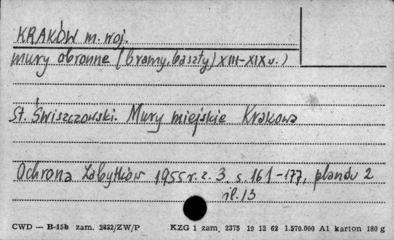 KRAKÓW m. woj.
mury obronne (bramy, baszty) XIII-XIX w.)
St. Świszczowski. Mury miejskie Krakowa
Ochrona Zabytków 1955 r. z. 3, s. 161-177, planów 2
il. 13
CWD — B-15b zam. 2822/ZW/P KZG 1 zam. 2375 19 12 62 1.570.000 A1 karton 180 g